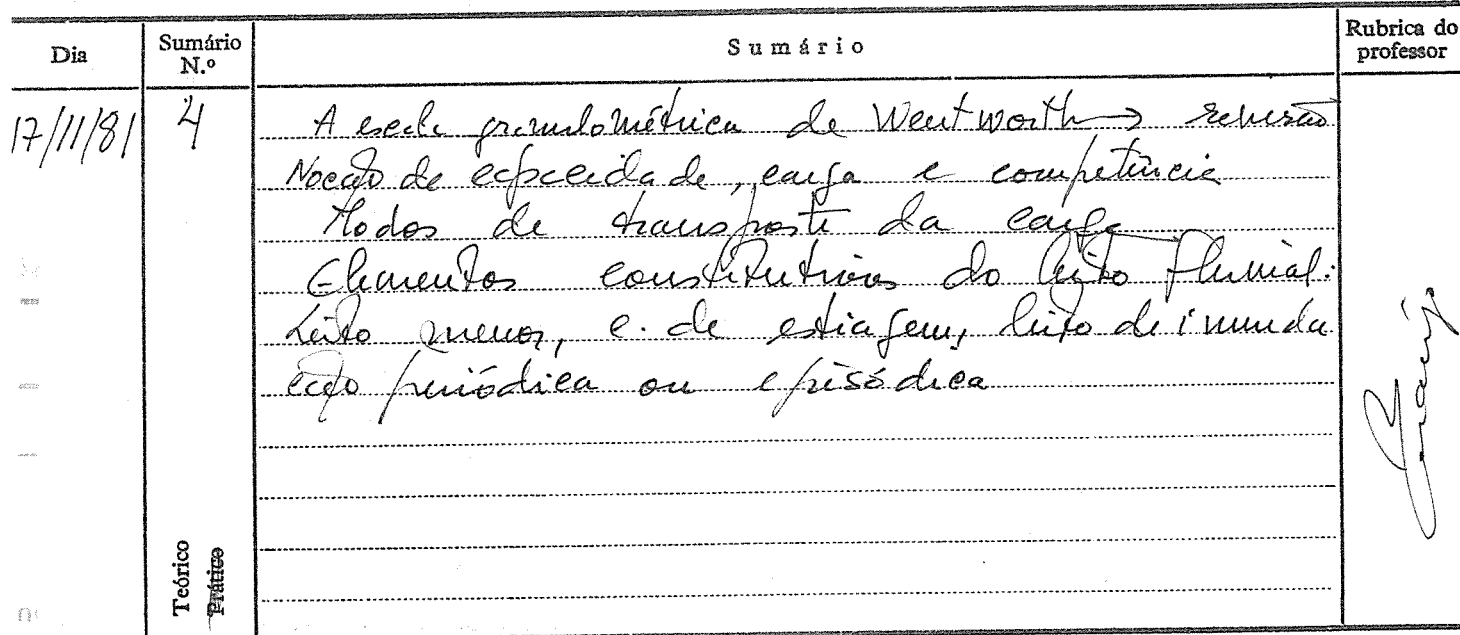 Dia Sumário N.º Sumário Rubrica do professor
17/11/81 4 A escala granulométrica de Wentworth → revisão
Noção de capacidade, carga e competência
Modos de transporte da carga
Elementos constitutivos do leito fluvial:
Leito menor, e. de estiagem, leito de inunda
ção periódica ou episódica
Teórico
Prático